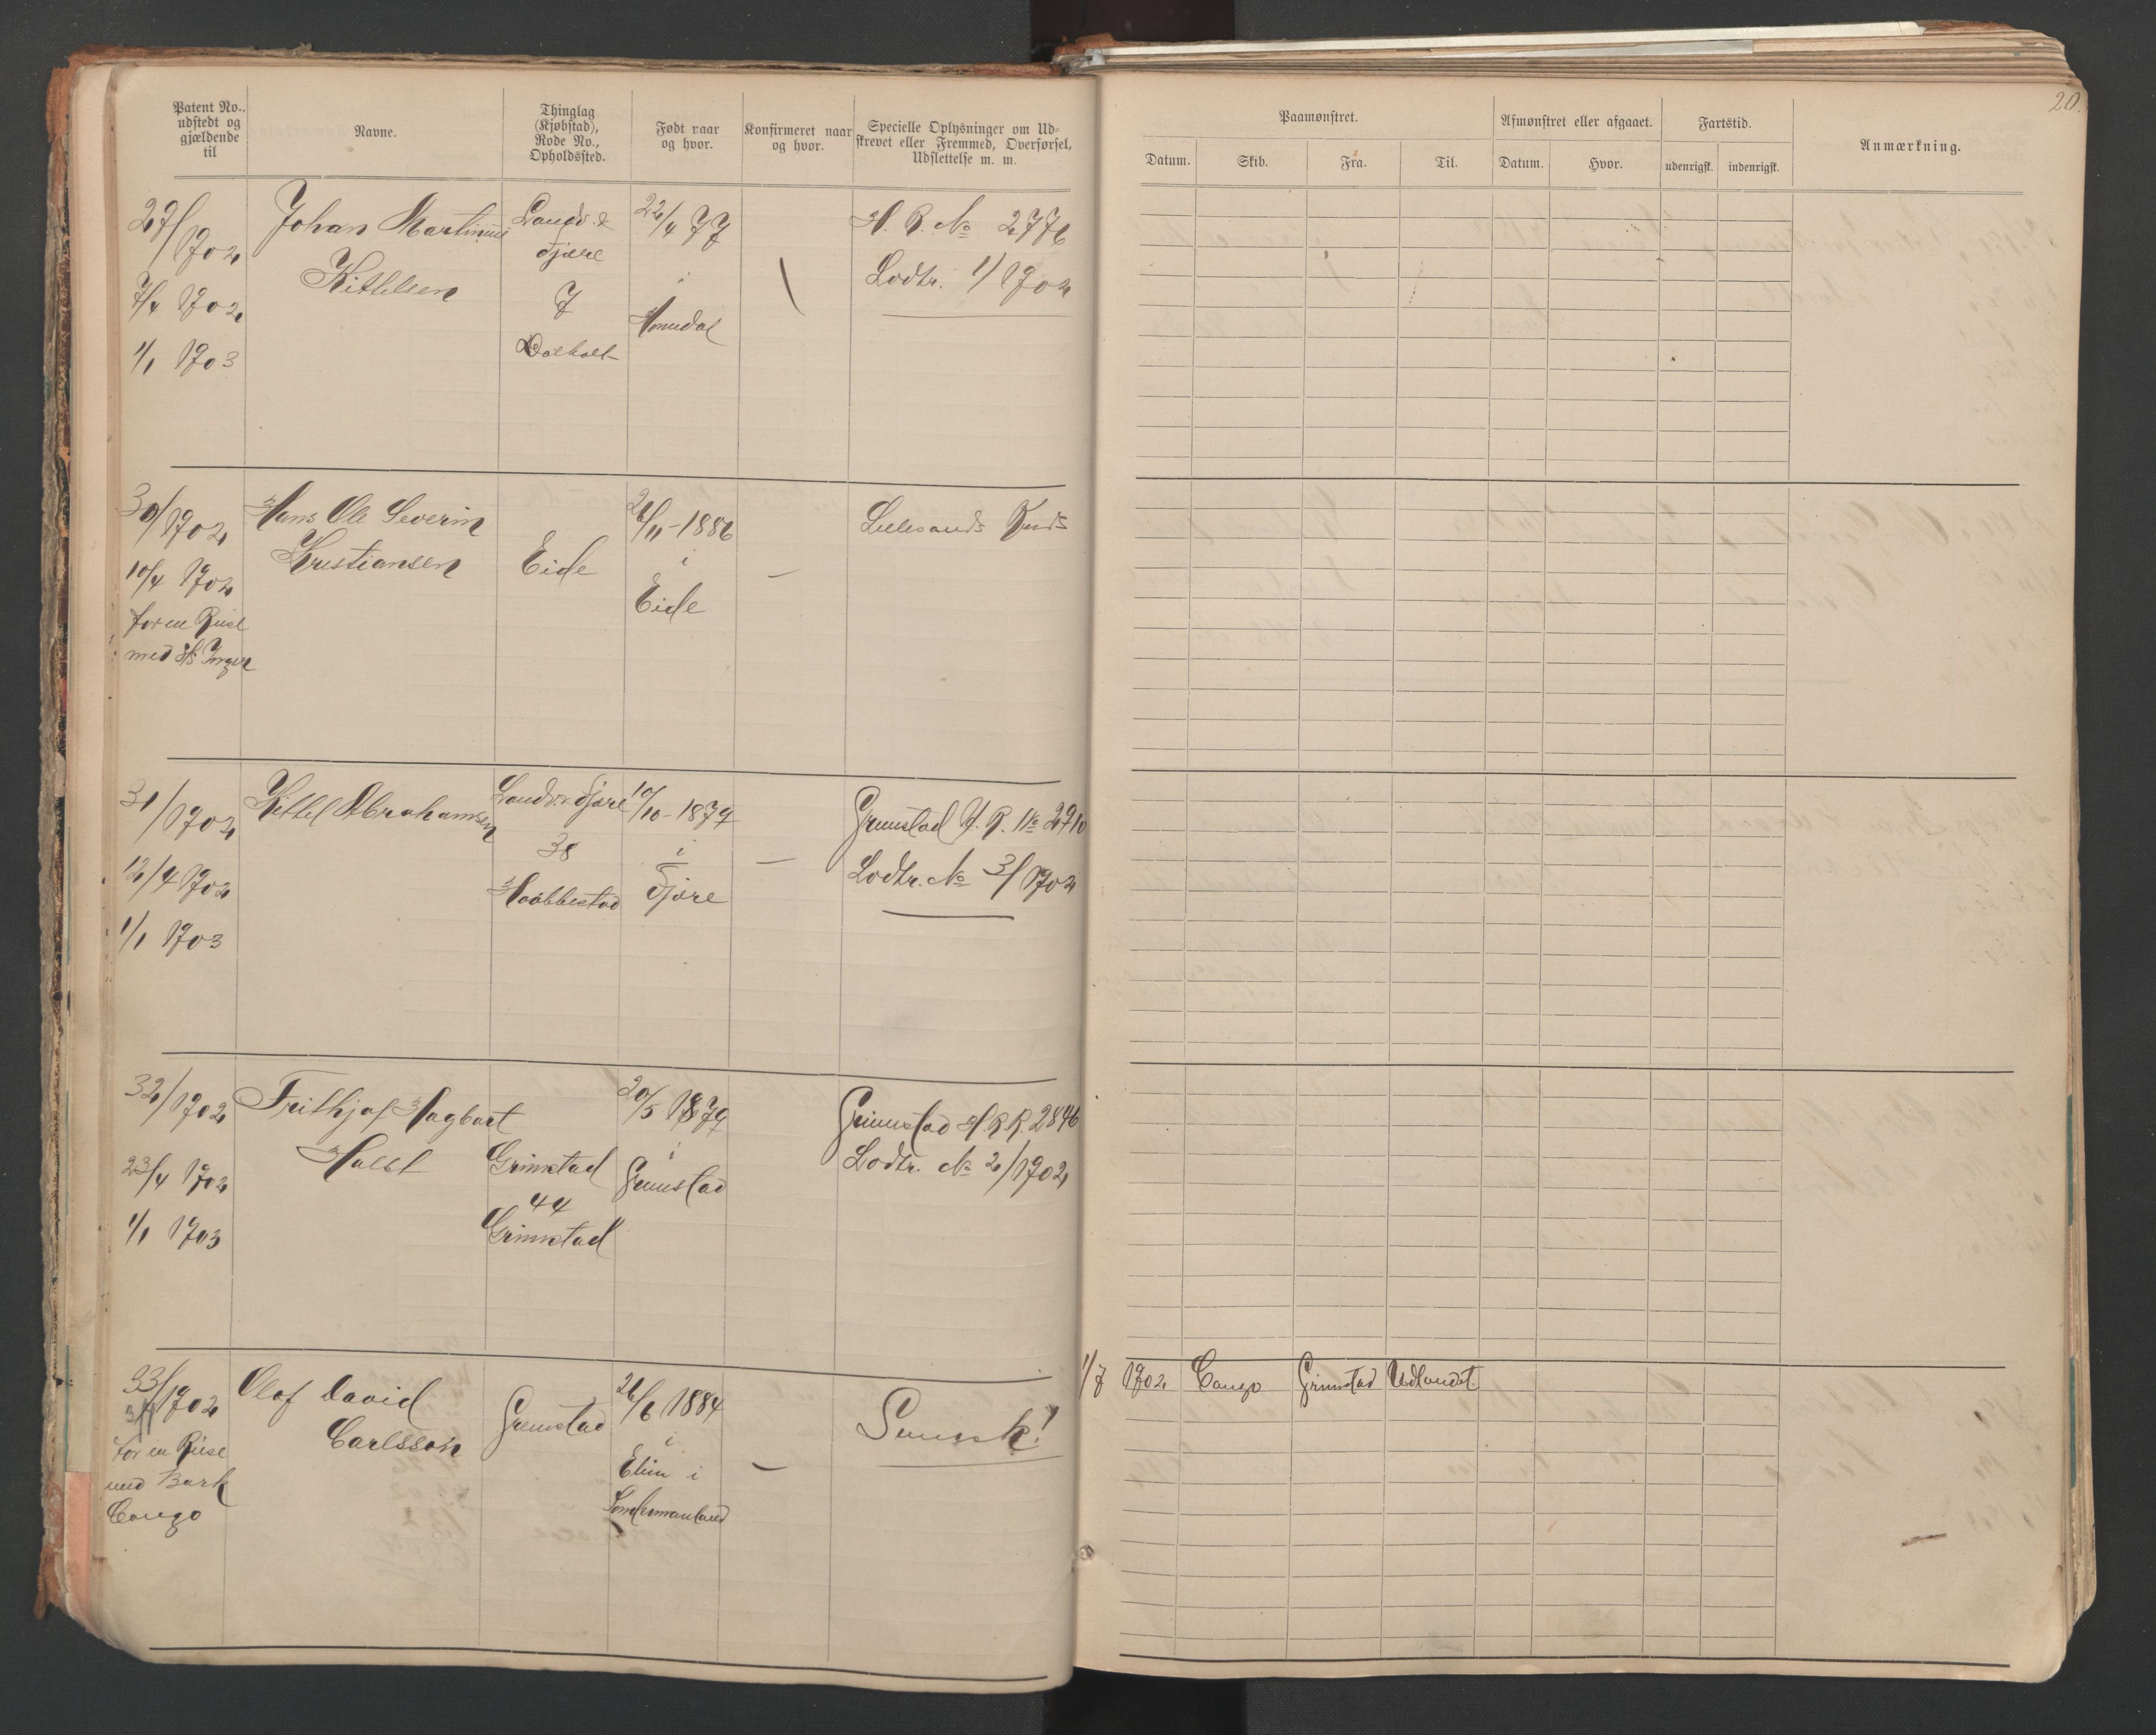 20.
Patent No.. udstedt og gjældende til
Navne.
Thinglag (Kjøbstad), Rode No., Opholdssted.
Født naar og hvor.
Konfirmeret naar og hvor.
Specielle Oplysninger om Udskrevet eller Fremmed, Overførsel, Udslettelse m. m.
Paamønstret.
Afmønstret eller afgaaet.
Fartstid.
Anmærkning.
Datum.
Skib.
Fra.
Til.
Datum.
Hvor.
udenrigsk.
indenrigsk.
29/1902
7/4 1902
1/1 1903
Johan Martinius
Kittelsen
Landv. &
Fjære
7
22/4 77
i
H. R. No 2776
Lodtr. 1/1902
30/1902
10/4 1902
for en Reise
med S/S Inger
Hans Ole Severin
Kristiansen
Eide
26/11-1886
i
Eide
—
Lillesands
31/1902
12/4 1902
1/1 1903
Kittel Abrahamsen
Landv. & Fjære
38
10/10-1879
i
Fjære
—
Grimstad H. R. No 2910
Lodtr. No 3/1902
32/1902
23/4 1902
1/1 1903
Frithjof Hagbart
Grimstad
44
Grimstad
20/5 1879
i
Grimstad
Grimstad H. R. R. 2846
Lodtr. No 2/1902
33/1902
for en Reise
med Bark
Congo
Olaf David
Carlsson
Grimstad
26/6 1884
i
i
Södermanland
—
Svensk!
1/7 1902 Congo Grimstad Udlandet